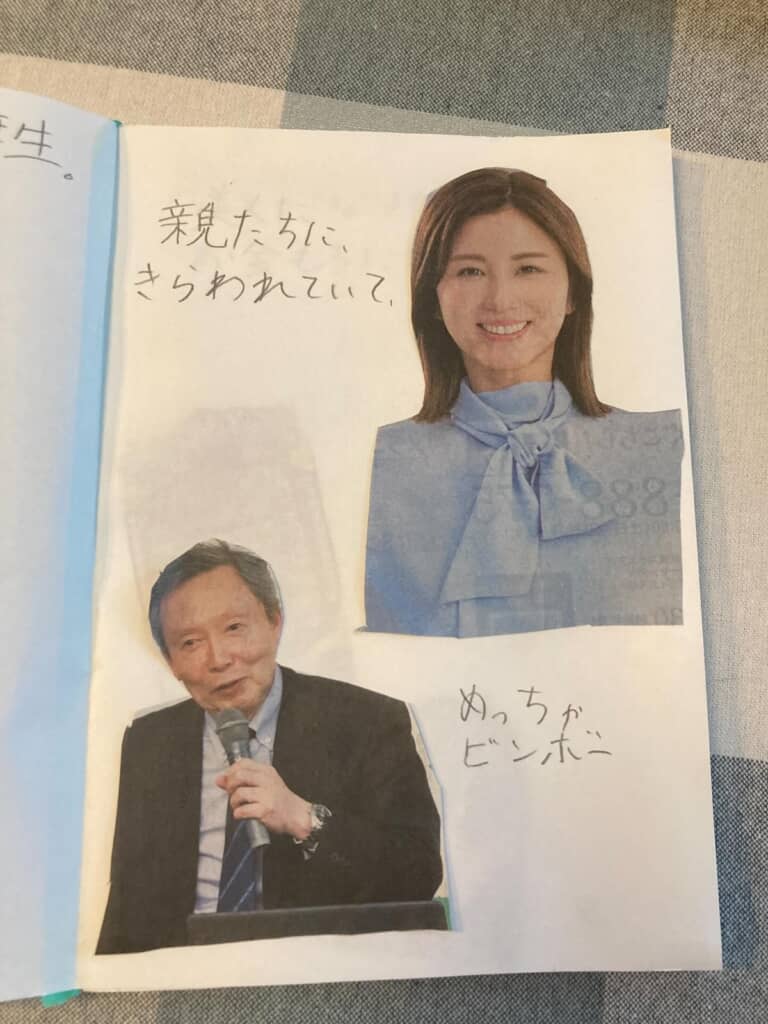 生。
親たちに、
きらわれていて、
めっちゃ
ビンボー
888